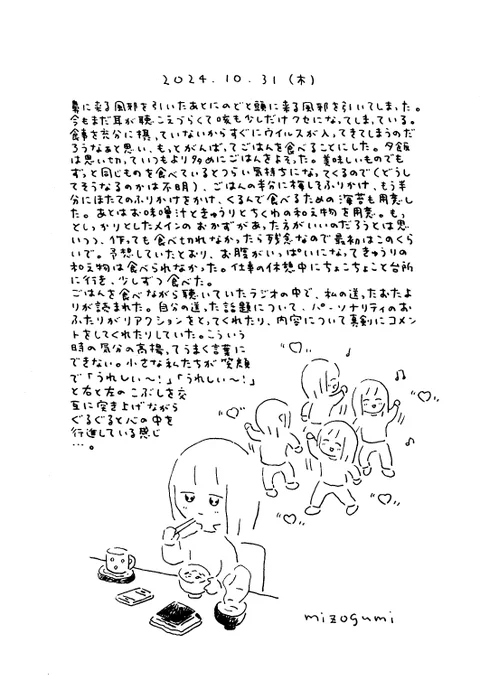 2024.10.31(木)
鼻に来る風邪を引いたあとにのどと頭に来る風邪を引いてしまった。
今もまだ耳が聴こえづらくて咳も少しだけクセになってしまっている。
食事を充分に摂っていないからすぐにウイルスが入ってきてしまうのだ
ろうなあと思い、もっとがんばってごはんを食べることにした。夕飯
は思い切っていつもより多めにごはんをよそった。美味しいものでも
ずっと同じものを食べているとつらい気持ちになってくるので(どうし
てそうなるのかは不明)、ごはんの半分に梅しそふりかけ、もう半
分にほたてのふりかけをかけ、くるんで食べるための海苔も用意し
た。あとはお味噌汁ときゅうりとちくわの和え物を用意。もっ
としっかりとしたメインのおかずがあった方がいいのだろうとは思
いつつ、作っても食べ切れなかったら残念なので最初はこのくら
いで。予想していたとおり、お腹がいっぱいになってきゅうりの
和え物は食べられなかった。仕事の休憩中にちょこちょこと台所
に行き、少しずつ食べた。
ごはんを食べながら聴いていたラジオの中で、私の送ったおたよ
りが読まれた。自分の送った話題について、パーソナリティのお
ふたりがリアクションをとってくれたり、内容について真剣にコメン
トをしてくれたりしていた。こういう
時の気分の高揚ってうまく言葉に
できない。小さな私たちが笑顔
で「うれしい〜!」「うれしい〜!」
と右と左のこぶしを交
互に突き上げながら
ぐるぐると心の中を
行進している感じ
…。
mizogumi